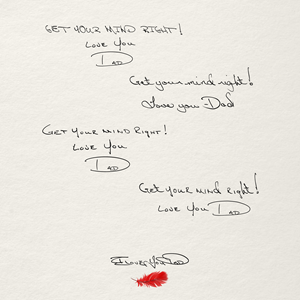 GET YOUR MIND RIGHT!
LOVE YOU
DAD
Get your mind right!
Love you - Dad
GET YOUR MIND RIGHT!
LOVE YOU
DAD
Get your mind right!
LOVE YOU DAD